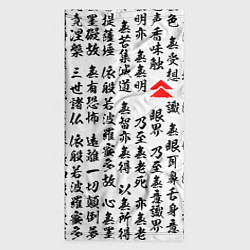 色 無受想 識 無眼耳鼻舌身意
声香味触 眼界 乃至無意識界
明亦無無明 乃至無老死 亦無老
無苦集滅道 無智亦無得 以無所得
提薩埵 依般若波羅蜜多 故心無
罣礙故 無有恐怖 遠離 一切顛倒夢
竟涅槃 三世諸仏 依般若波羅蜜多